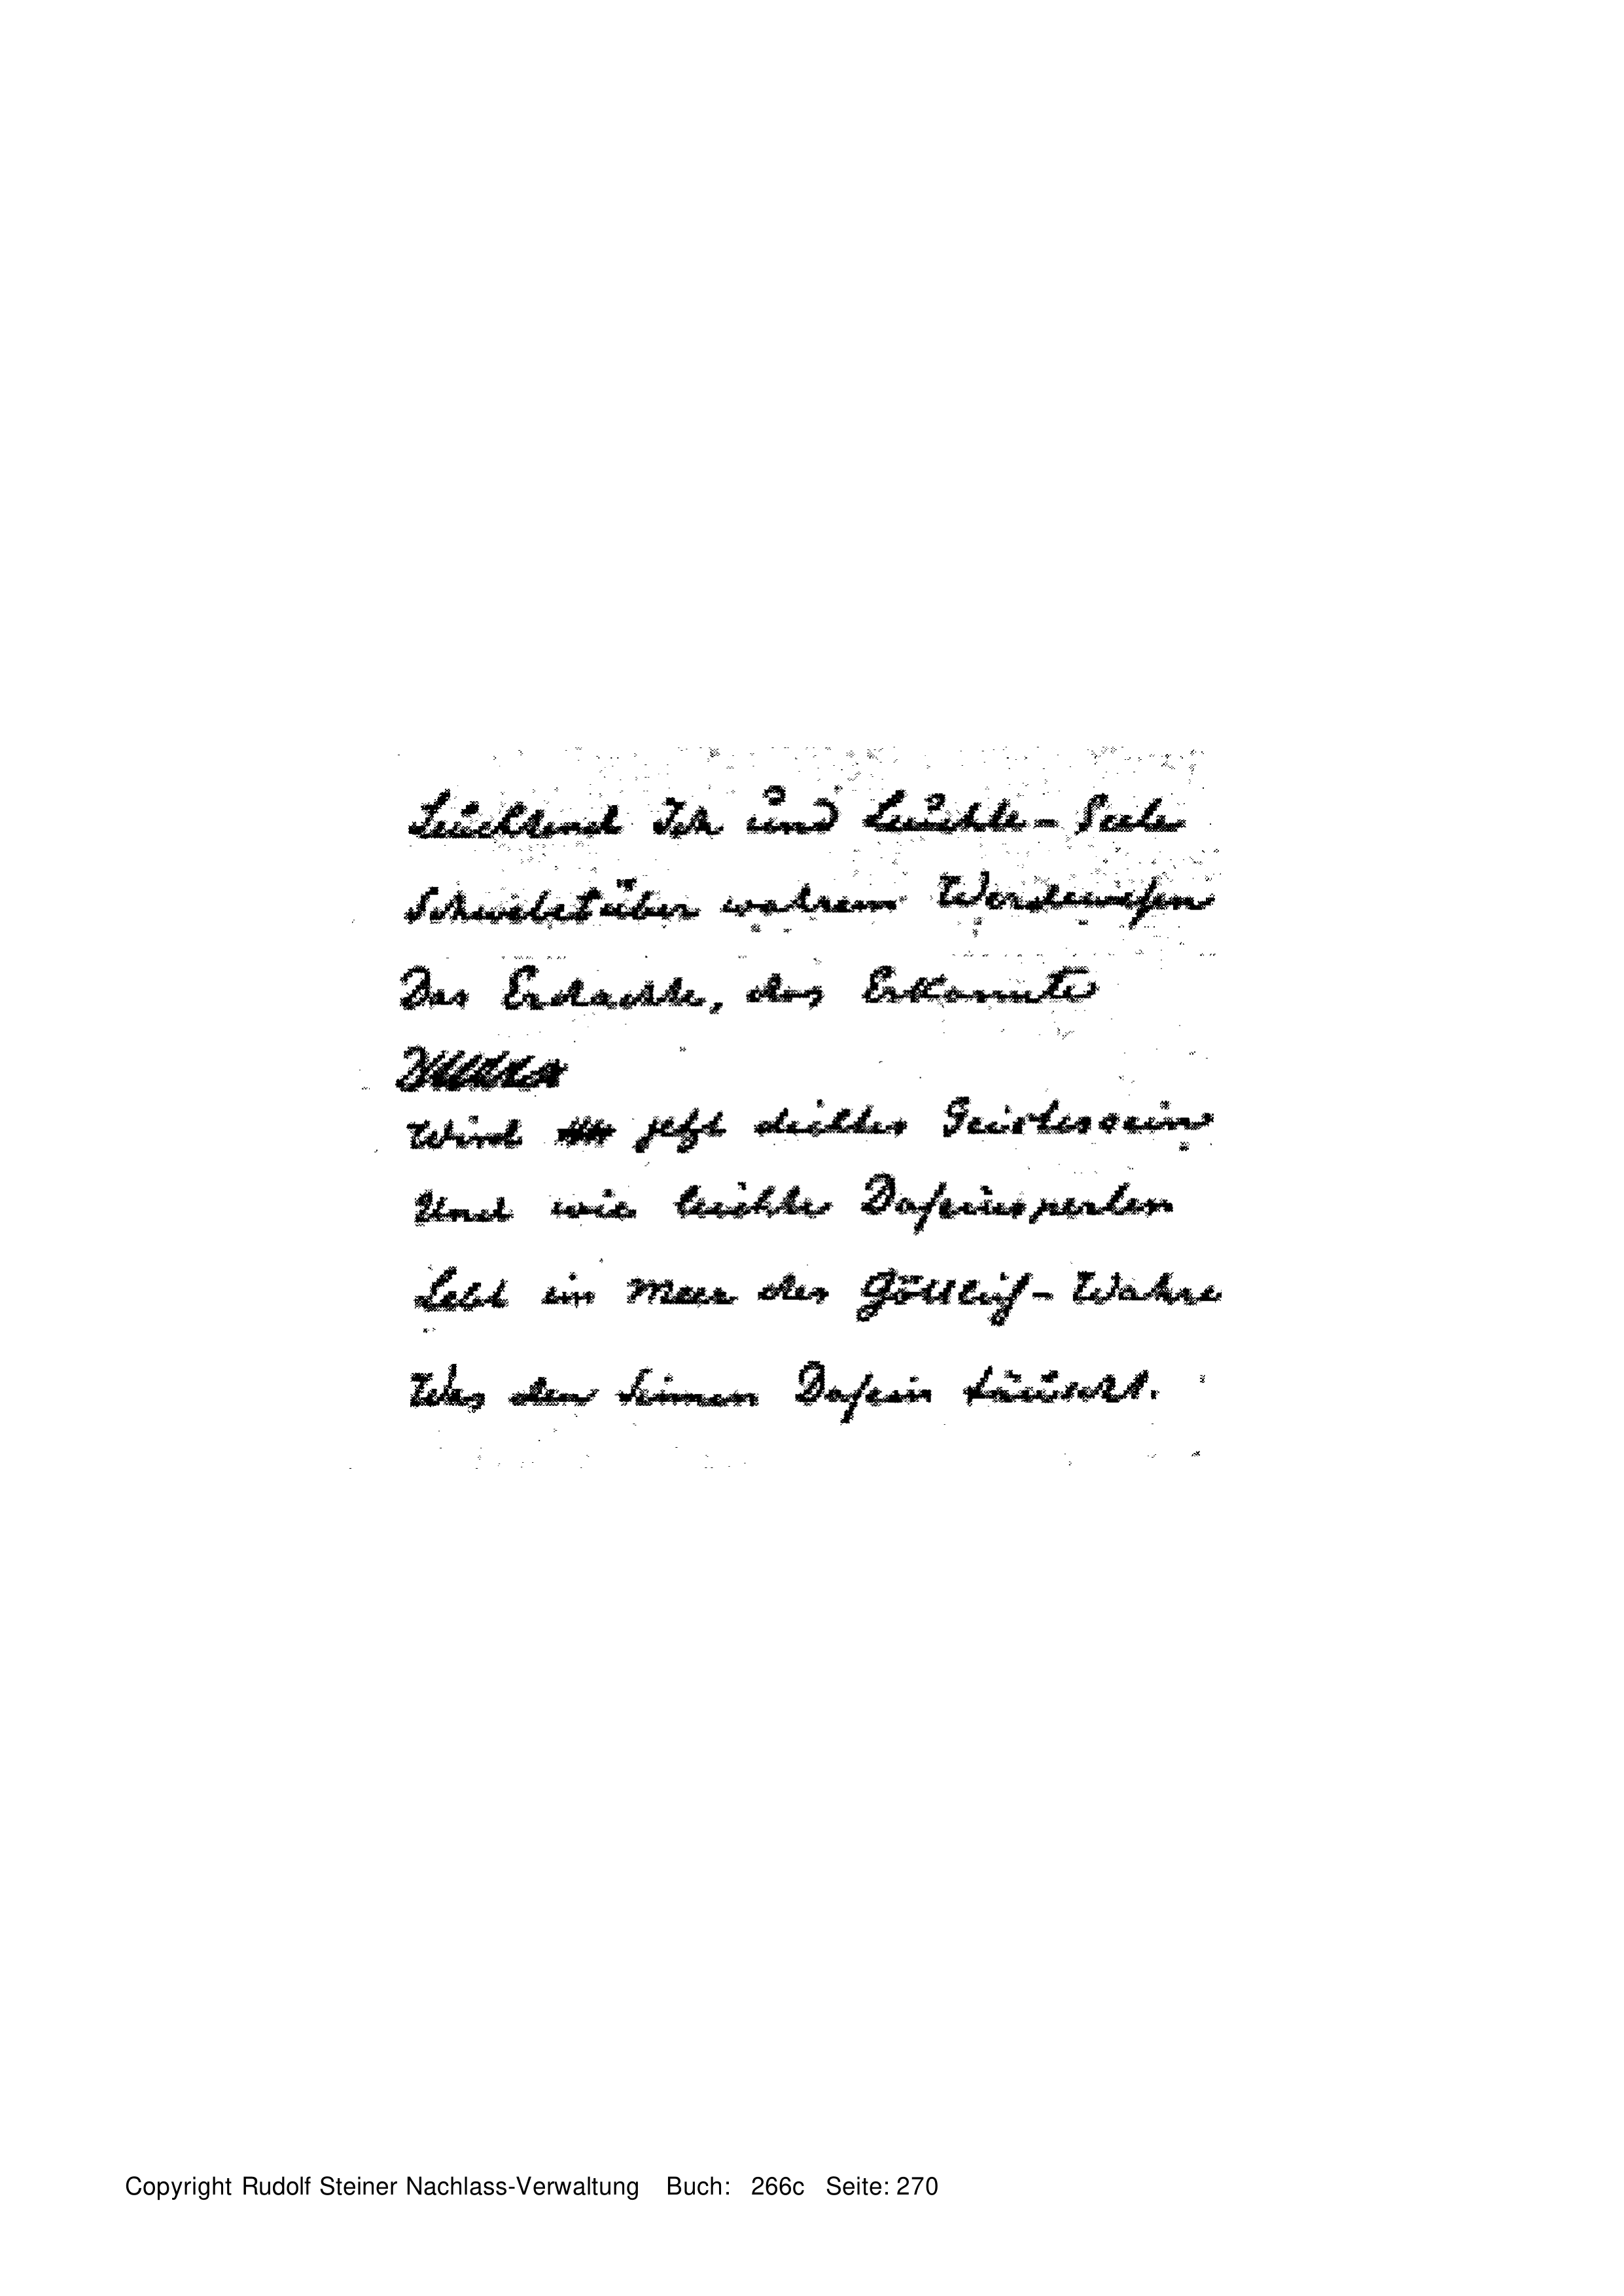 Leuchtend Ich und Leuchte-Seele
Schwebet über wahrem Werdewesen
Das Erdachte, das Erkannte
Wird jetzt dichtes Geistessein
Und wie leichte Daseinsperlen
Lebt im Meer des Göttlich-Wahre
Was den Sinnen Dasein täuscht.
Copyright Rudolf Steiner Nachlass-Verwaltung Buch: 266c Seite: 270